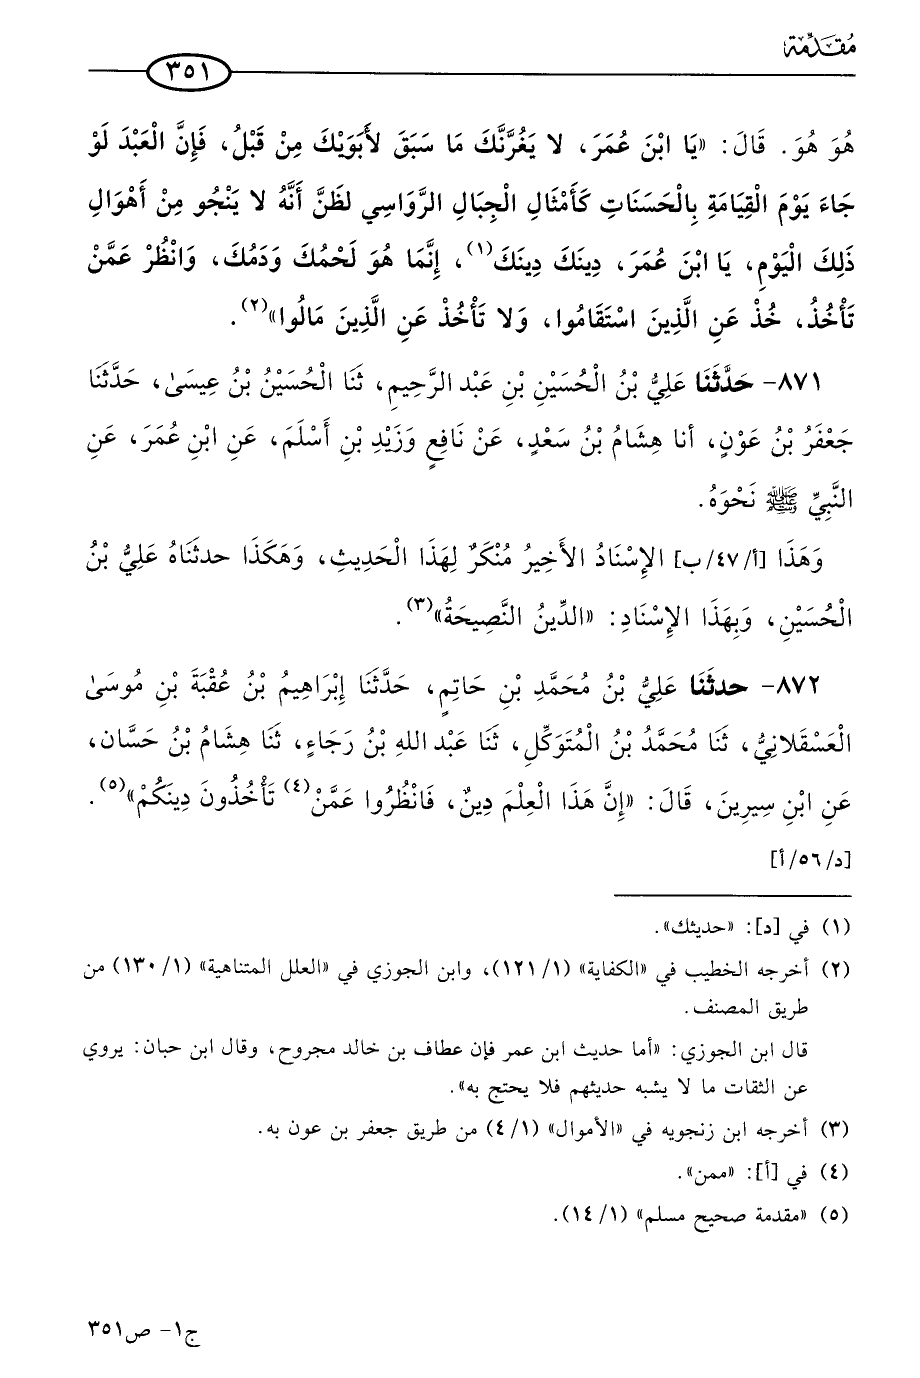 مُقَدِّمَة
٣٥١
هُوَ هُوَ. قَالَ: «يَا ابْنَ عُمَرَ، لا يَغُرَّنَّكَ مَا سَبَقَ لأَبَوَيْكَ مِنْ قَبْلُ، فَإِنَّ الْعَبْدَ لَوْ
جَاءَ يَوْمَ الْقِيَامَةِ بِالْحَسَنَاتِ كَأَمْثَالِ الْجِبَالِ الرَّوَاسِي لظَنَّ أَنَّهُ لا يَنْجُو مِنْ أَهْوَالِ
ذَلِكَ الْيَوْمِ، يَا ابْنَ عُمَرَ، دِينَكَ دِينَكَ(١)، إِنَّمَا هُوَ لَحْمُكَ وَدَمُكَ، وَانْظُرْ عَمَّنْ
تَأْخُذُ، خُذْ عَنِ الَّذِينَ اسْتَقَامُوا، وَلا تَأْخُذْ عَنِ الَّذِينَ مَالُوا»(٢).
٨٧١- حَدَّثَنَا عَلِيُّ بْنُ الْحُسَيْنِ بْنِ عَبْد الرَّحِيمِ، ثَنَا الْحُسَيْنُ بْنُ عِيسَىٰ، حَدَّثَنَا
جَعْفَرُ بْنُ عَوْنٍ، أنا هِشَامُ بْنُ سَعْدٍ، عَنْ نَافِعٍ وَزَيْدِ بْنِ أَسْلَمَ، عَنِ ابْنِ عُمَرَ، عَنِ
النَّبِيِّ ﷺ نَحْوَهُ.
وَهَذَا [أ/٤٧/ب] الإِسْنَادُ الأَخِيرُ مُنْكَرٌ لِهَذَا الْحَدِيثِ، وَهَكَذَا حدثَنَاهُ عَلِيُّ بْنُ
الْحُسَيْنِ، وَبِهَذَا الإِسْنَادِ: «الدِّينُ النَّصِيحَةُ»(٣).
٨٧٢- حدثَنَا عَلِيُّ بْنُ مُحَمَّدِ بْنِ حَاتِمٍ، حَدَّثَنَا إِبْرَاهِيمُ بْنُ عُقْبَةَ بْنِ مُوسَىٰ
الْعَسْقَلانِيُّ، ثَنَا مُحَمَّدُ بْنُ الْمُتَوَكِّلِ، ثَنَا عَبْد اللهِ بْنُ رَجَاءٍ، ثَنَا هِشَامُ بْنُ حَسَّان،
عَنِ ابْنِ سِيرِينَ، قَالَ: «إِنَّ هَذَا الْعِلْمَ دِينٌ، فَانْظُرُوا عَمَّنْ(٤) تَأْخُذُونَ دِينَكُمْ»(٥).
[د/٥٦/أ]
(١) في [د]: «حديثك».
(٢) أخرجه الخطيب في «الكفاية» (١/ ١٢١)، وابن الجوزي في «العلل المتناهية» (١/ ١٣٠) من
طريق المصنف.
قال ابن الجوزي: «أما حديث ابن عمر فإن عطاف بن خالد مجروح، وقال ابن حبان: يروي
عن الثقات ما لا يشبه حديثهم فلا يحتج به».
(٣) أخرجه ابن زنجويه في «الأموال» (١/ ٤) من طريق جعفر بن عون به.
(٤) في [أ]: «ممن».
(٥) «مقدمة صحيح مسلم» (١/ ١٤).
ج١- ص٣٥١